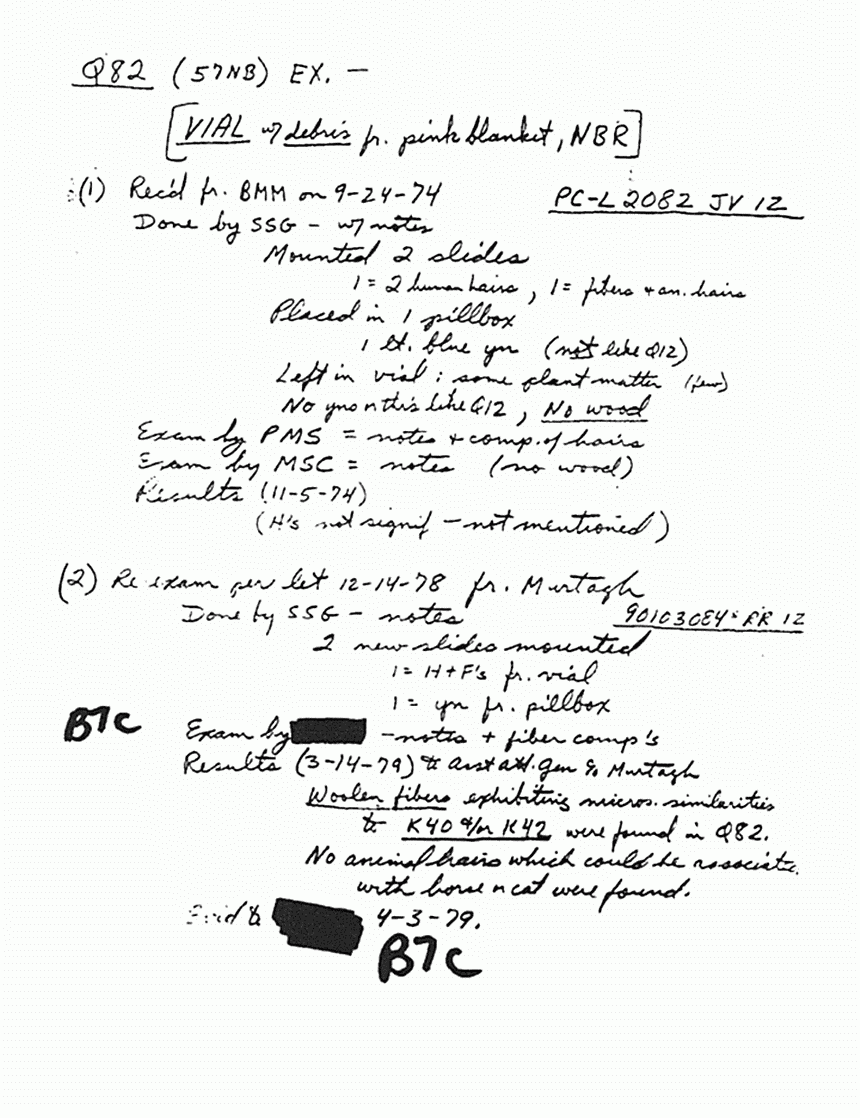 Q82 (57NB) EX. —
[VIAL w/ debris fr. pink blanket, NBR]
(1) Rec'd fr. BMM on 9-24-74
PC-L 2082 JV 1Z
Done by SSG - w/ notes
Mounted 2 slides
1 = 2 human hairs, 1 = fibers + an. hairs
Placed in 1 pillbox
1 lt. blue yn (not like Q12)
Left in vial : some plant matter (few)
No yns n this like Q12, No wood
Exam by PMS = notes + comp. of hairs
Exam by MSC = notes (no wood)
Results (11-5-74)
(H's not signif - not mentioned)
(2) Re exam per let 12-14-78 fr. Murtagh
Done by SSG - notes
90103084 RR 1Z
2 new slides mounted
1 = H + F's fr. vial
1 = yn fr. pillbox
B7C
Exam by - notes + fiber comp's
Results (3-14-79) to asst att. gen % Murtagh
Woolen fibers exhibiting micros. similarities
to K40 &/or K42 were found in Q82.
No animal hairs which could be associate.
with horse n cat were found.
Evid to 4-3-79.
B7C